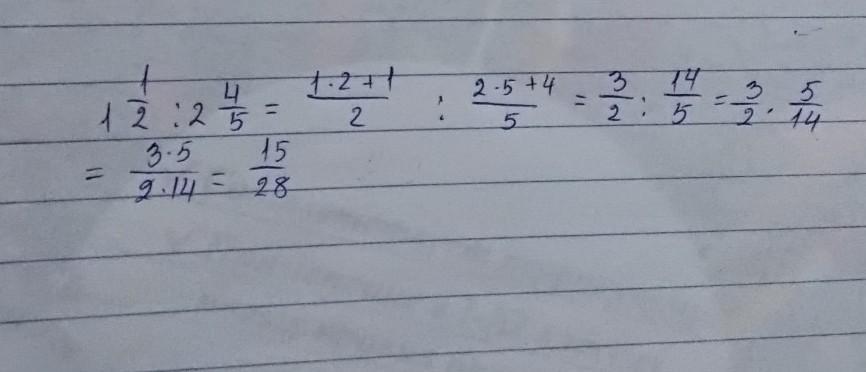 1 1/2 : 2 4/5 = (1·2+1)/2 : (2·5+4)/5 = 3/2 : 14/5 = 3/2 · 5/14
= (3·5)/(2·14) = 15/28